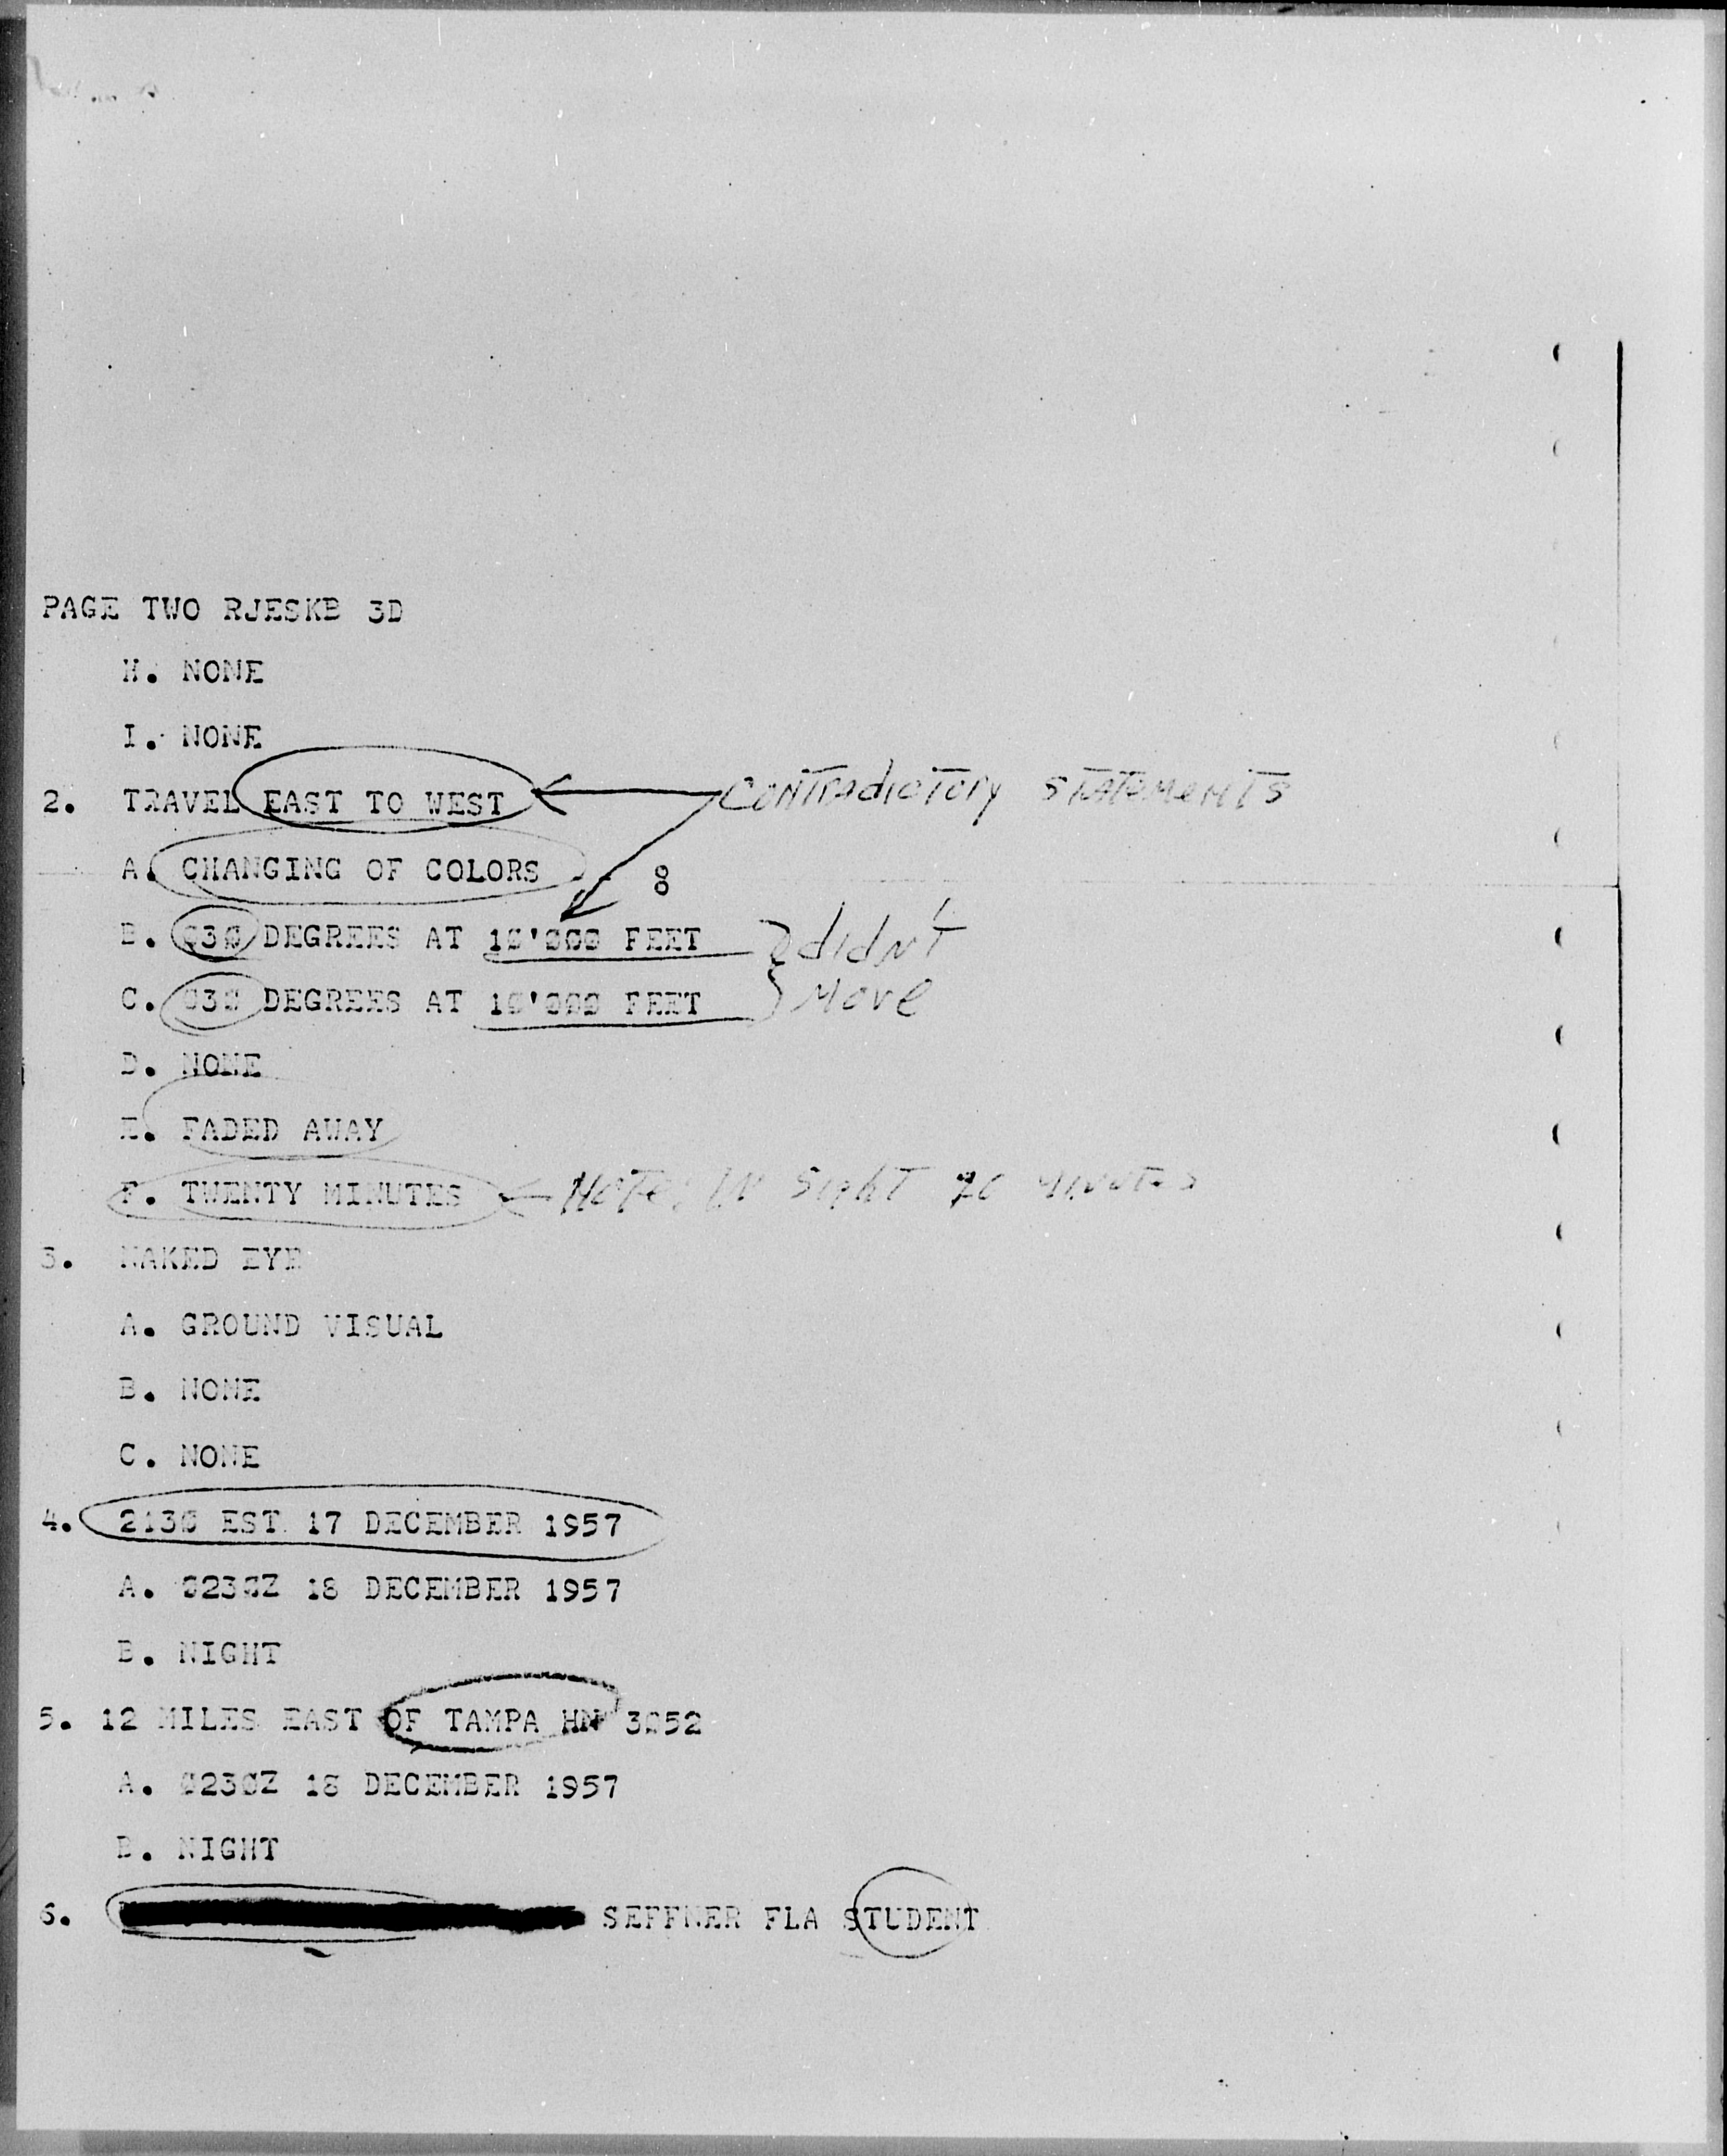 PAGE TWO RJESKB 3D
H. NONE
I. NONE
2. TRAVEL EAST TO WEST Contradictory statements
A. CHANGING OF COLORS 8
B. Ø3Ø DEGREES AT 1Ø'ØØØ FEET didn't
C. Ø3Ø DEGREES AT 1Ø'ØØØ FEET Move
D. NONE
E. FADED AWAY
F. TWENTY MINUTES Note: in sight 20 minutes
3. NAKED EYE
A. GROUND VISUAL
B. NONE
C. NONE
4. 213Ø EST 17 DECEMBER 1957
A. Ø23ØZ 18 DECEMBER 1957
B. NIGHT
5. 12 MILES EAST OF TAMPA HN 3Ø52
A. Ø23ØZ 18 DECEMBER 1957
B. NIGHT
6. SEFFNER FLA STUDENT